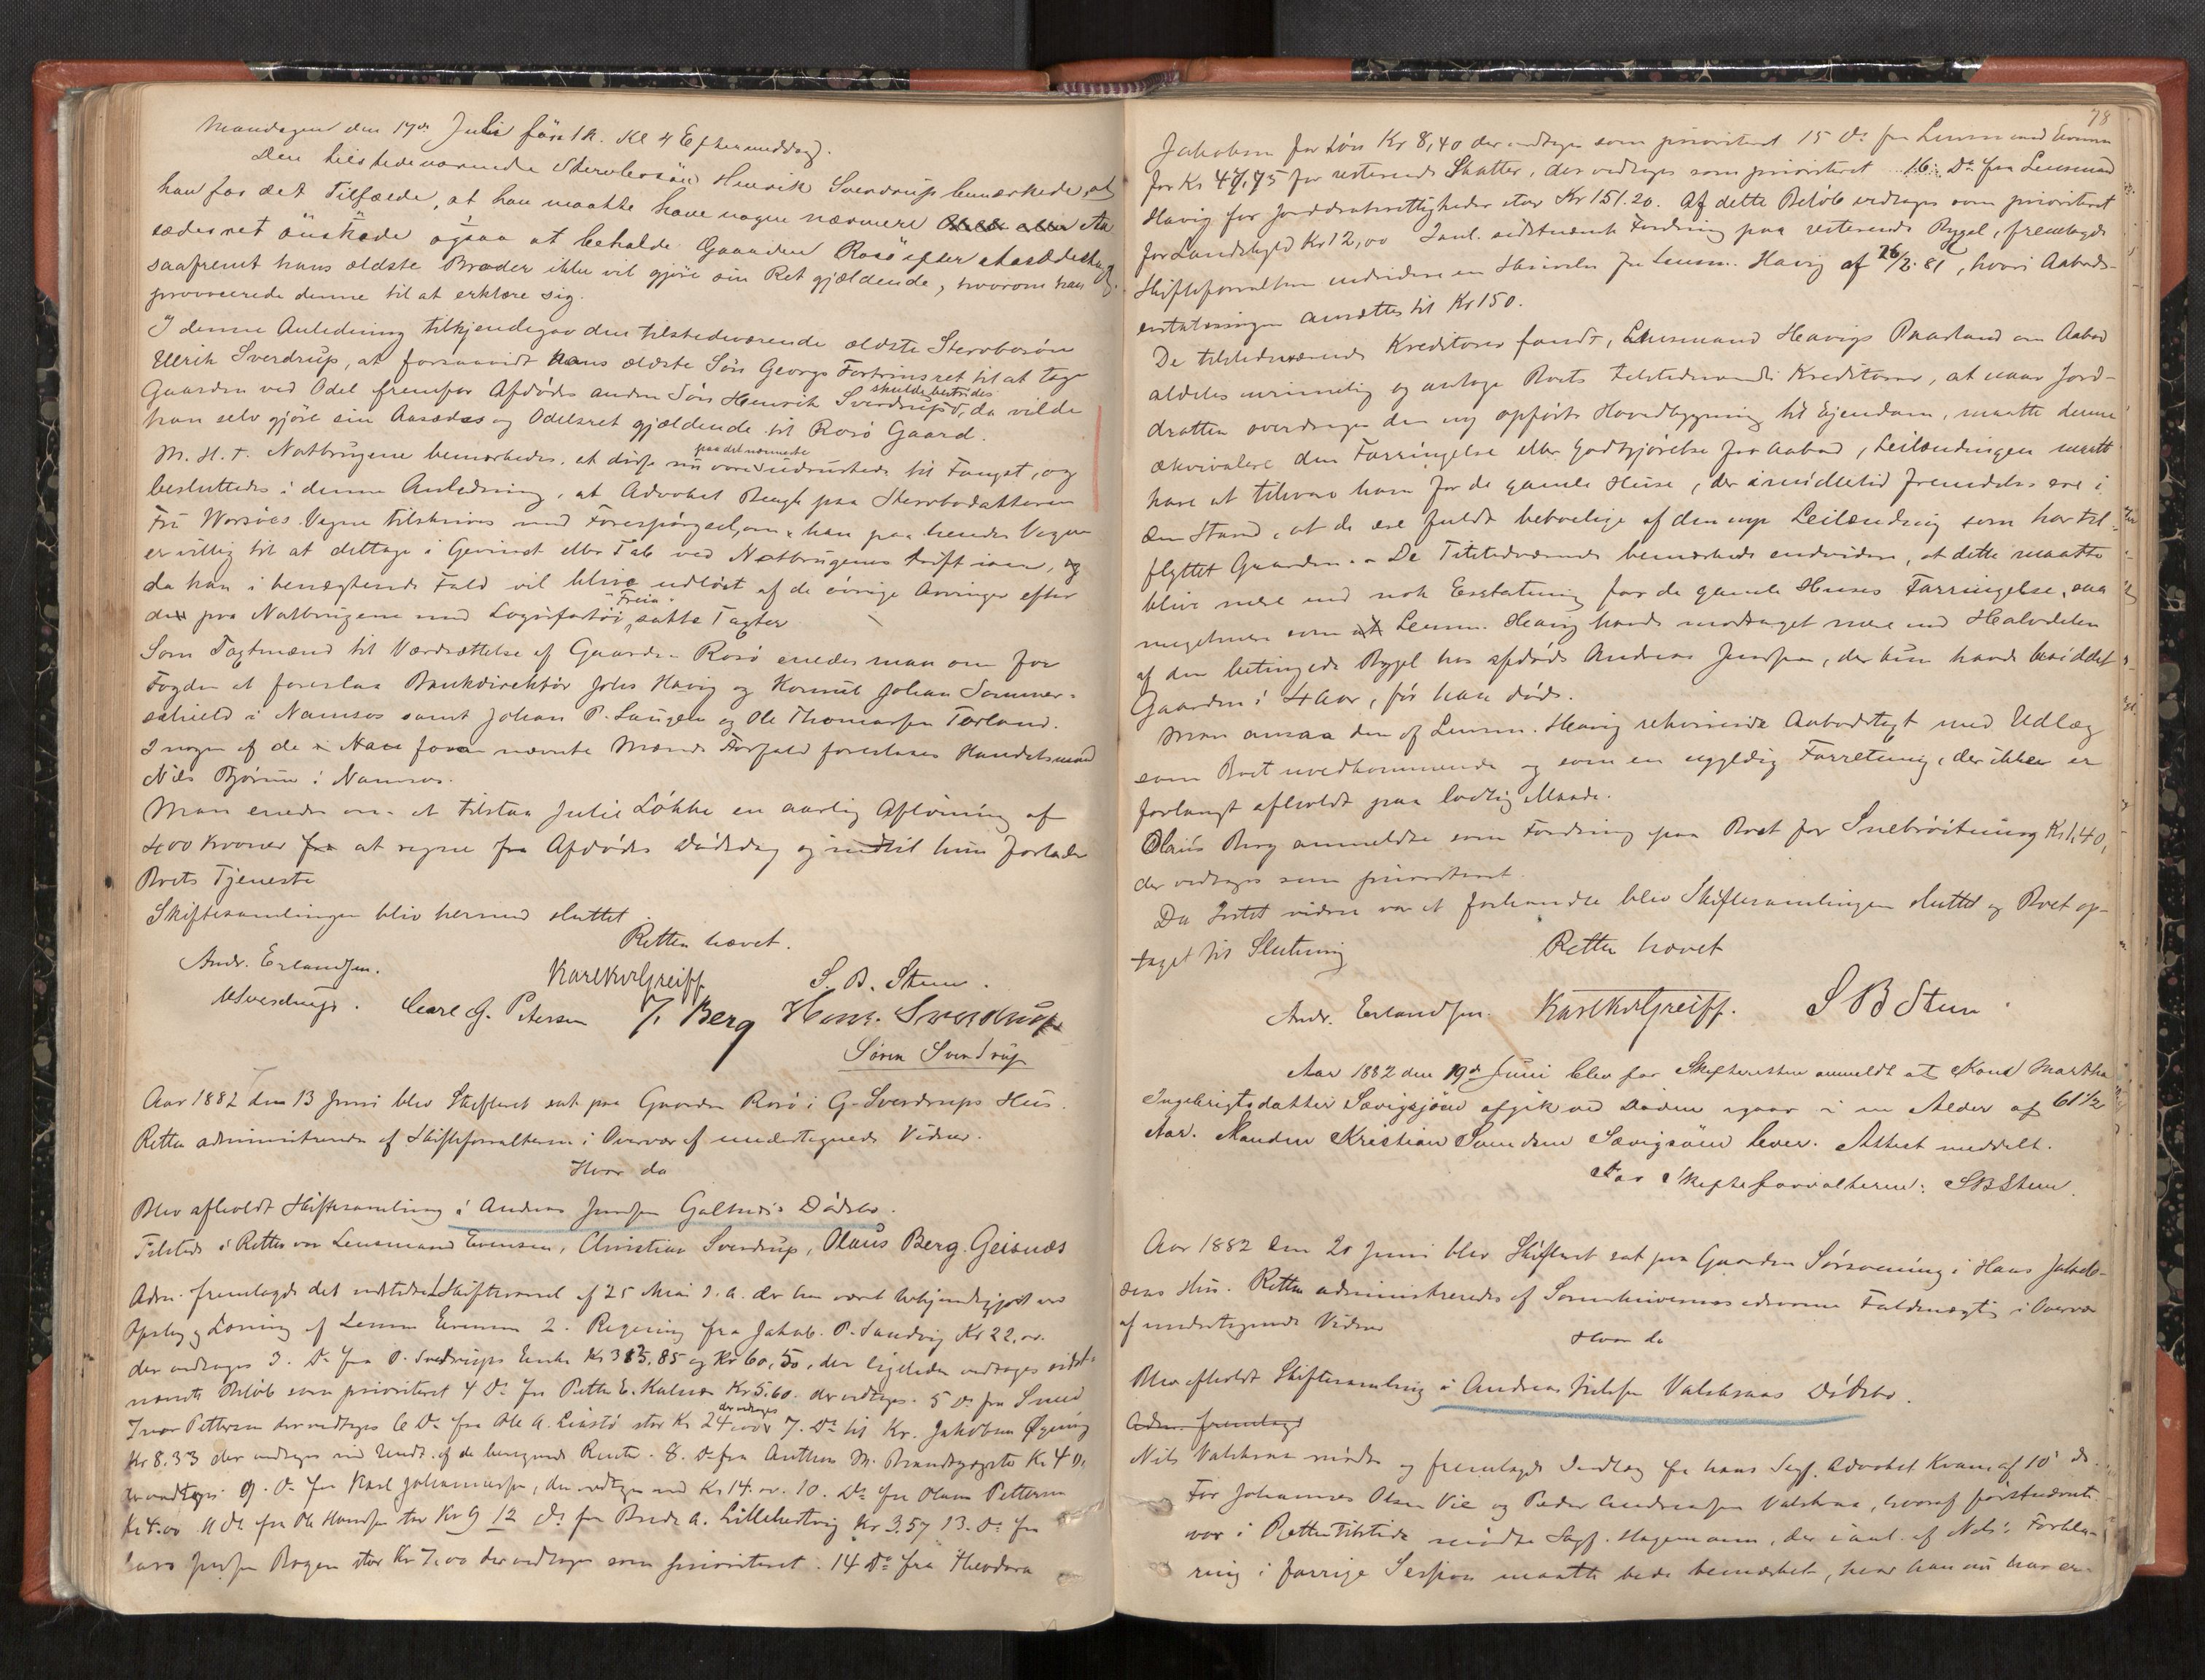 Mandagen den 17de Juli førstk. Kl 4 Eftermiddag.
Den tilstedeværende Stervbosøn Henrik Sverdrup bemærkede, at
han for det Tilfælde, at han maatte have nogen nærmere Aa
sædesret önskede ogsaa at beholde Gaarden Rosö efter
saafremt hans ældste Broder ikke vil gjøre sin Ret gjældende, hvorom han
provocerede denne til at erklære sig.
I denne Anledning tilkjendegav den tilstedeværende ældste Stervbosøn
Ulrik Sverdrup, at forsaavidt hans ældste Søn Georgs Fortrinsret til at tage
Gaarden ved Odel fremfor Afdødes anden Søn Henrik Sverdrup skulde bestrides, da vilde
han selv gjøre sin Aasædes og Odelsret gjældende til Rosö Gaard.
M. H. t. Notbrugene bemærkedes, at disse nu vare paa det nærmeste udrustede til Fangst, og
besluttedes i denne Anledning, at Advokat Bergh paa Sterbodatteren
Fru Worsöes Vegne tilskrives med Forespörgsel, om han paa hendes Vegne
er villig til at deltage i Gevinst eller Tab ved Notbrugenes Drift iaar, og
da han i benægtende Fald vil blive udløst af de øvrige Arvinger efter
den paa Notbrugene med Logisfartöi "Freia" satte Taxter
Som Taxtmænd til Værdsættelse af Gaarden Rosö enedes man om for
Fogden at foreslaa Bankdirektör Johs Havig og Konsul Johan Sommer-
schield i Namsos samt Johan P. Saugen og Ole Thomassen Torland.
I nogen af de foran nævnte Mænds Forfald foreslaaes Handelsmand
Nils Bjørum i Namsos.
Man enedes om at tilstaa Julie Løkke en aarlig Aflønning af
400 Kroner fra at regne fra Afdødes Dødsdag og indtil hun forlader
Boets Tjeneste
Skiftesamlingen blev hermed sluttet.
Retten hævet.
Andr. Erlandsen. Karl KvGreiff S. B. Stene.
USverdrup. Carl G. Petersen J. Berg Henr. Sverdrup
Søren Sverdrup
Aar 1882 den 13 Juni blev Skifteret sat paa Gaarden Rosö i G. Sverdrups Hus.
Retten administreredes af Skifteforvalteren i Overvær af undertegnede Vidner.
Hvor da
Blev afholdt Skiftesamling i Andreas Jensen Galtnes's Dødsbo.
Tilstede i Retten var Lensmand Evensen, Christian Sverdrup, Olaus Berg Geisnæs
Adm. fremlagde det udstedte Skiftevarsel af 25 Mai d. A. der har været bekjendtgjort ved
Opslag og Læsning af Lensm Evensen 2. Regning fra Jakob P. Sandvig Kr 22,00
der vedtages 3. Do fra P. Sverdrups Enke Kr 313,85 og Kr 60,50, der ligeledes vedtages sidst-
nævnte Beløb som prioriteret 4 Do fra Petter E. Kalnæs Kr 5,60 der vedtages. 5 Do fra Smed
Ivar Pettersen der vedtages 6 Do fra Ole A. Leirstö stor Kr 24,00 der vedtages 7. Do til Kr. Jakobsen Øgning
Kr 8.33 der vedtages med Undt. af de beregnede Renter. 8. Do fra Anthon M. Brandtzægster Kr 4 Do
vedtages 9. Do fra Karl Johannessen, der vedtages med Kr 14.00. 10. Do fra Olaus Pettersen
Kr 4.00 11 Do fra Ole Hansen stor Kr 9 12 Do fra Peder A. Lillehestvig Kr 3,57 13. Do fra
Lars Jensen Bogen stor Kr 7,00 der vedtages som prioriteret. 14 Do fra Theodora
78
Jakobsen for Løn Kr 8,40 der vedtages som prioriteret 15 Do fra Lensmand Evensen
for Kr 47,75 for resterende Skatter, der vedtages som prioriteret 16. Do fra Lensmand
Havig for Jorddrotsrettigheder stor Kr 151.20. Af dette Beløb vedtages som prioriteret
for Landskyld Kr 12,00 I anl. sidstnævnte Fordring paa resterende Bygsel, fremlagde
Skifteforvalteren endvidere en Skrivelse fra Lensm. Havig af 26/2 81, hvori Aabods-
erstatningen ansættes til Kr 150.
De tilstedeværende Kreditorer fandt, Lensmand Havigs Paastand om Aabod
aldeles urimelig og antoge Boets tilstedeværende Kreditorer, at naar Jord-
drotten overdrages den ny opførte Hovedbygning til Ejendom, maatte denne
ækvivalere den Forringelse eller Godtgjørelse for Aabod, Leilændingen maatte
have at tilsvare ham for de gamle Huse, der imidlertid fremdeles ere i
den Stand, at de ere fuldt beboelige af den nye Leilænding som har til-
flyttet Gaarden. - De Tilstedeværende bemærkede endvidere, at dette maatte
blive mere end nok Erstatning for de gamle Huses Forringelse, saa
meget mere som Lensm. Havig havde modtaget mere end Halvdelen
af den betingede Bygsel hos afdøde Andreas Jensen, der kun havde besiddet
Gaarden i 4 Aar, før han døde.
Man ansaa den af Lensm. Havig rekvirerede Aabodstaxt med Udlæg
som Boet uvedkommende og som en ugyldig Forretning, der ikke er
forlangt afholdt paa lovlig Maade.
Olaüs Berg anmeldte som Fordring paa Boet for Snebröitning Kr 1,40,
der vedtages som prioriteret.
Da Intet videre var at forhandle blev Skiftesamlingen sluttet og Boet op-
taget til Slutning
Retten hævet
Andr. Erlandsen. Karl KvGreiff. S B Stene.
Aar 1882 den 19de Juni blev for Skifteretten anmeldt at Kone Martha
Ingebrigtsdatter Sævigsjøen afgik ved Døden igaar i en Alder af 61 1/2
Aar. Manden Kristian Svendsen Sævigsöen lever. Attest meddelt.
For Skifteforvalteren: SBStene.
Aar 1882 den 20 Juni blev Skifteret sat paa Gaarden Sørsvening i Hans Jakob-
sens Hus. Retten administreredes af Sorenskriverens edsvorne Fuldmægtig i Overvær
af undertegnede Vidner
Hvor da
Blev afholdt Skiftesamling i Andreas Nielsen Valskraas Dødsbo.
Adm. fremlagde
Nils Valskraa mødte og fremlagde Indlæg fra hans Sagf. Advokat Kvam af 10de ds.
For Johannes Olsen Vie og Peder Andreassen Valskraa, hvoraf førstnævnte
var i Retten tilstede mødte Sagf. Hagemann, der i anl. af Nils's Forkla-
ring i forrige Session maatte bede bemærket, hvad han nu har er-